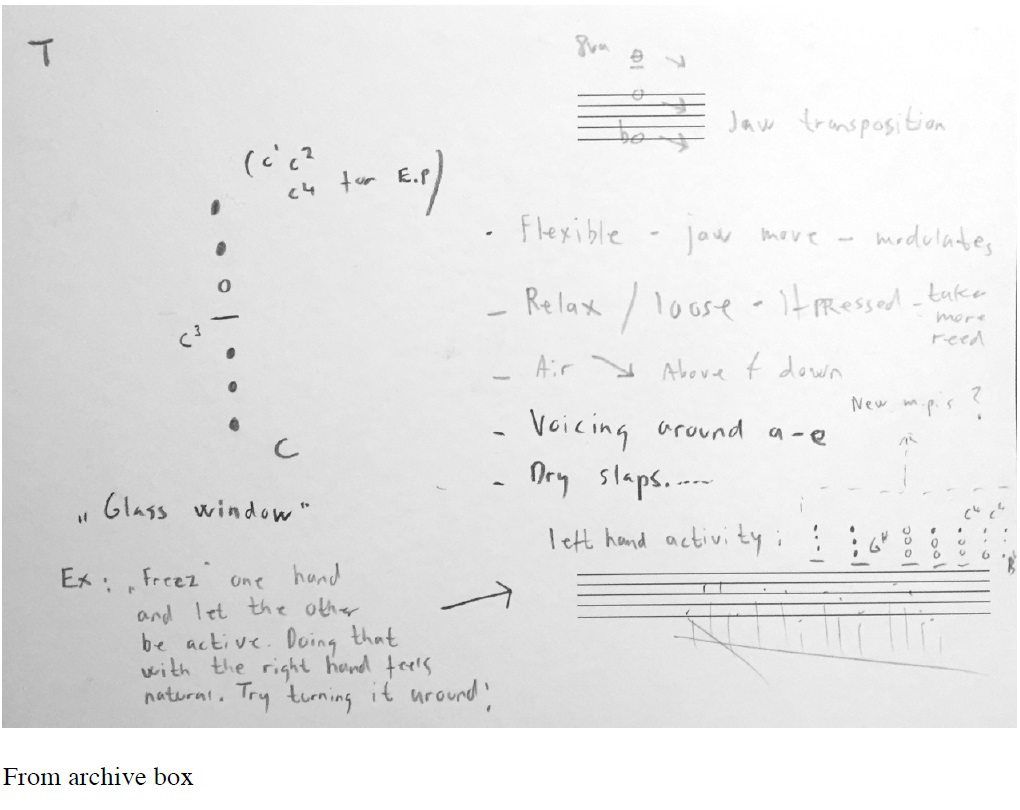 T
8va
Jaw transposition
(c¹ c²
c4 for E.P)
c³
C
„Glass window"
Ex: „Freez" one hand
and let the other
be active. Doing that
with the right hand feels
natural. Try turning it around!
• Flexible - jaw move - modulates
- Relax / loose - If PRessed - take
more
reed
- Air ↘ Above f down
New m.p.'s ?
- Voicing around a-e
- Dry slaps.....
left hand activity:
G#
C4 C²
B
From archive box